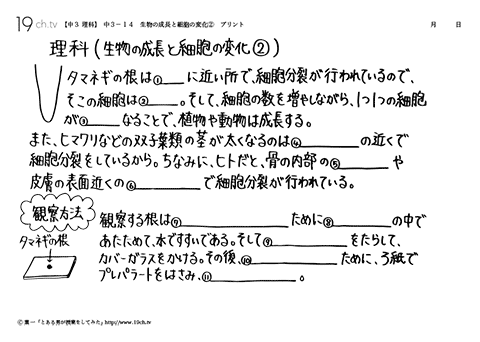 19ch.tv 【中3 理科】 中3-14 生物の成長と細胞の変化② プリント 月 日
理科(生物の成長と細胞の変化②)
タマネギの根は①___に近い所で、細胞分裂が行われているので、
そこの細胞は②___。そして、細胞の数を増やしながら、1つ1つの細胞
が③___なることで、植物や動物は成長する。
また、ヒマワリなどの双子葉類の茎が太くなるのは④___の近くで
細胞分裂をしているから。ちなみに、ヒトだと、骨の内部の⑤___や
皮膚の表面近くの⑥___で細胞分裂が行われている。
観察方法
タマネギの根
観察する根は⑦___ために⑧___の中で
あたためて、水ですすいである。そして⑨___をたらして、
カバーガラスをかける。その後、⑩___ために、ろ紙で
プレパラートをはさみ、⑪___。
©葉一「とある男が授業をしてみた」http://www.19ch.tv